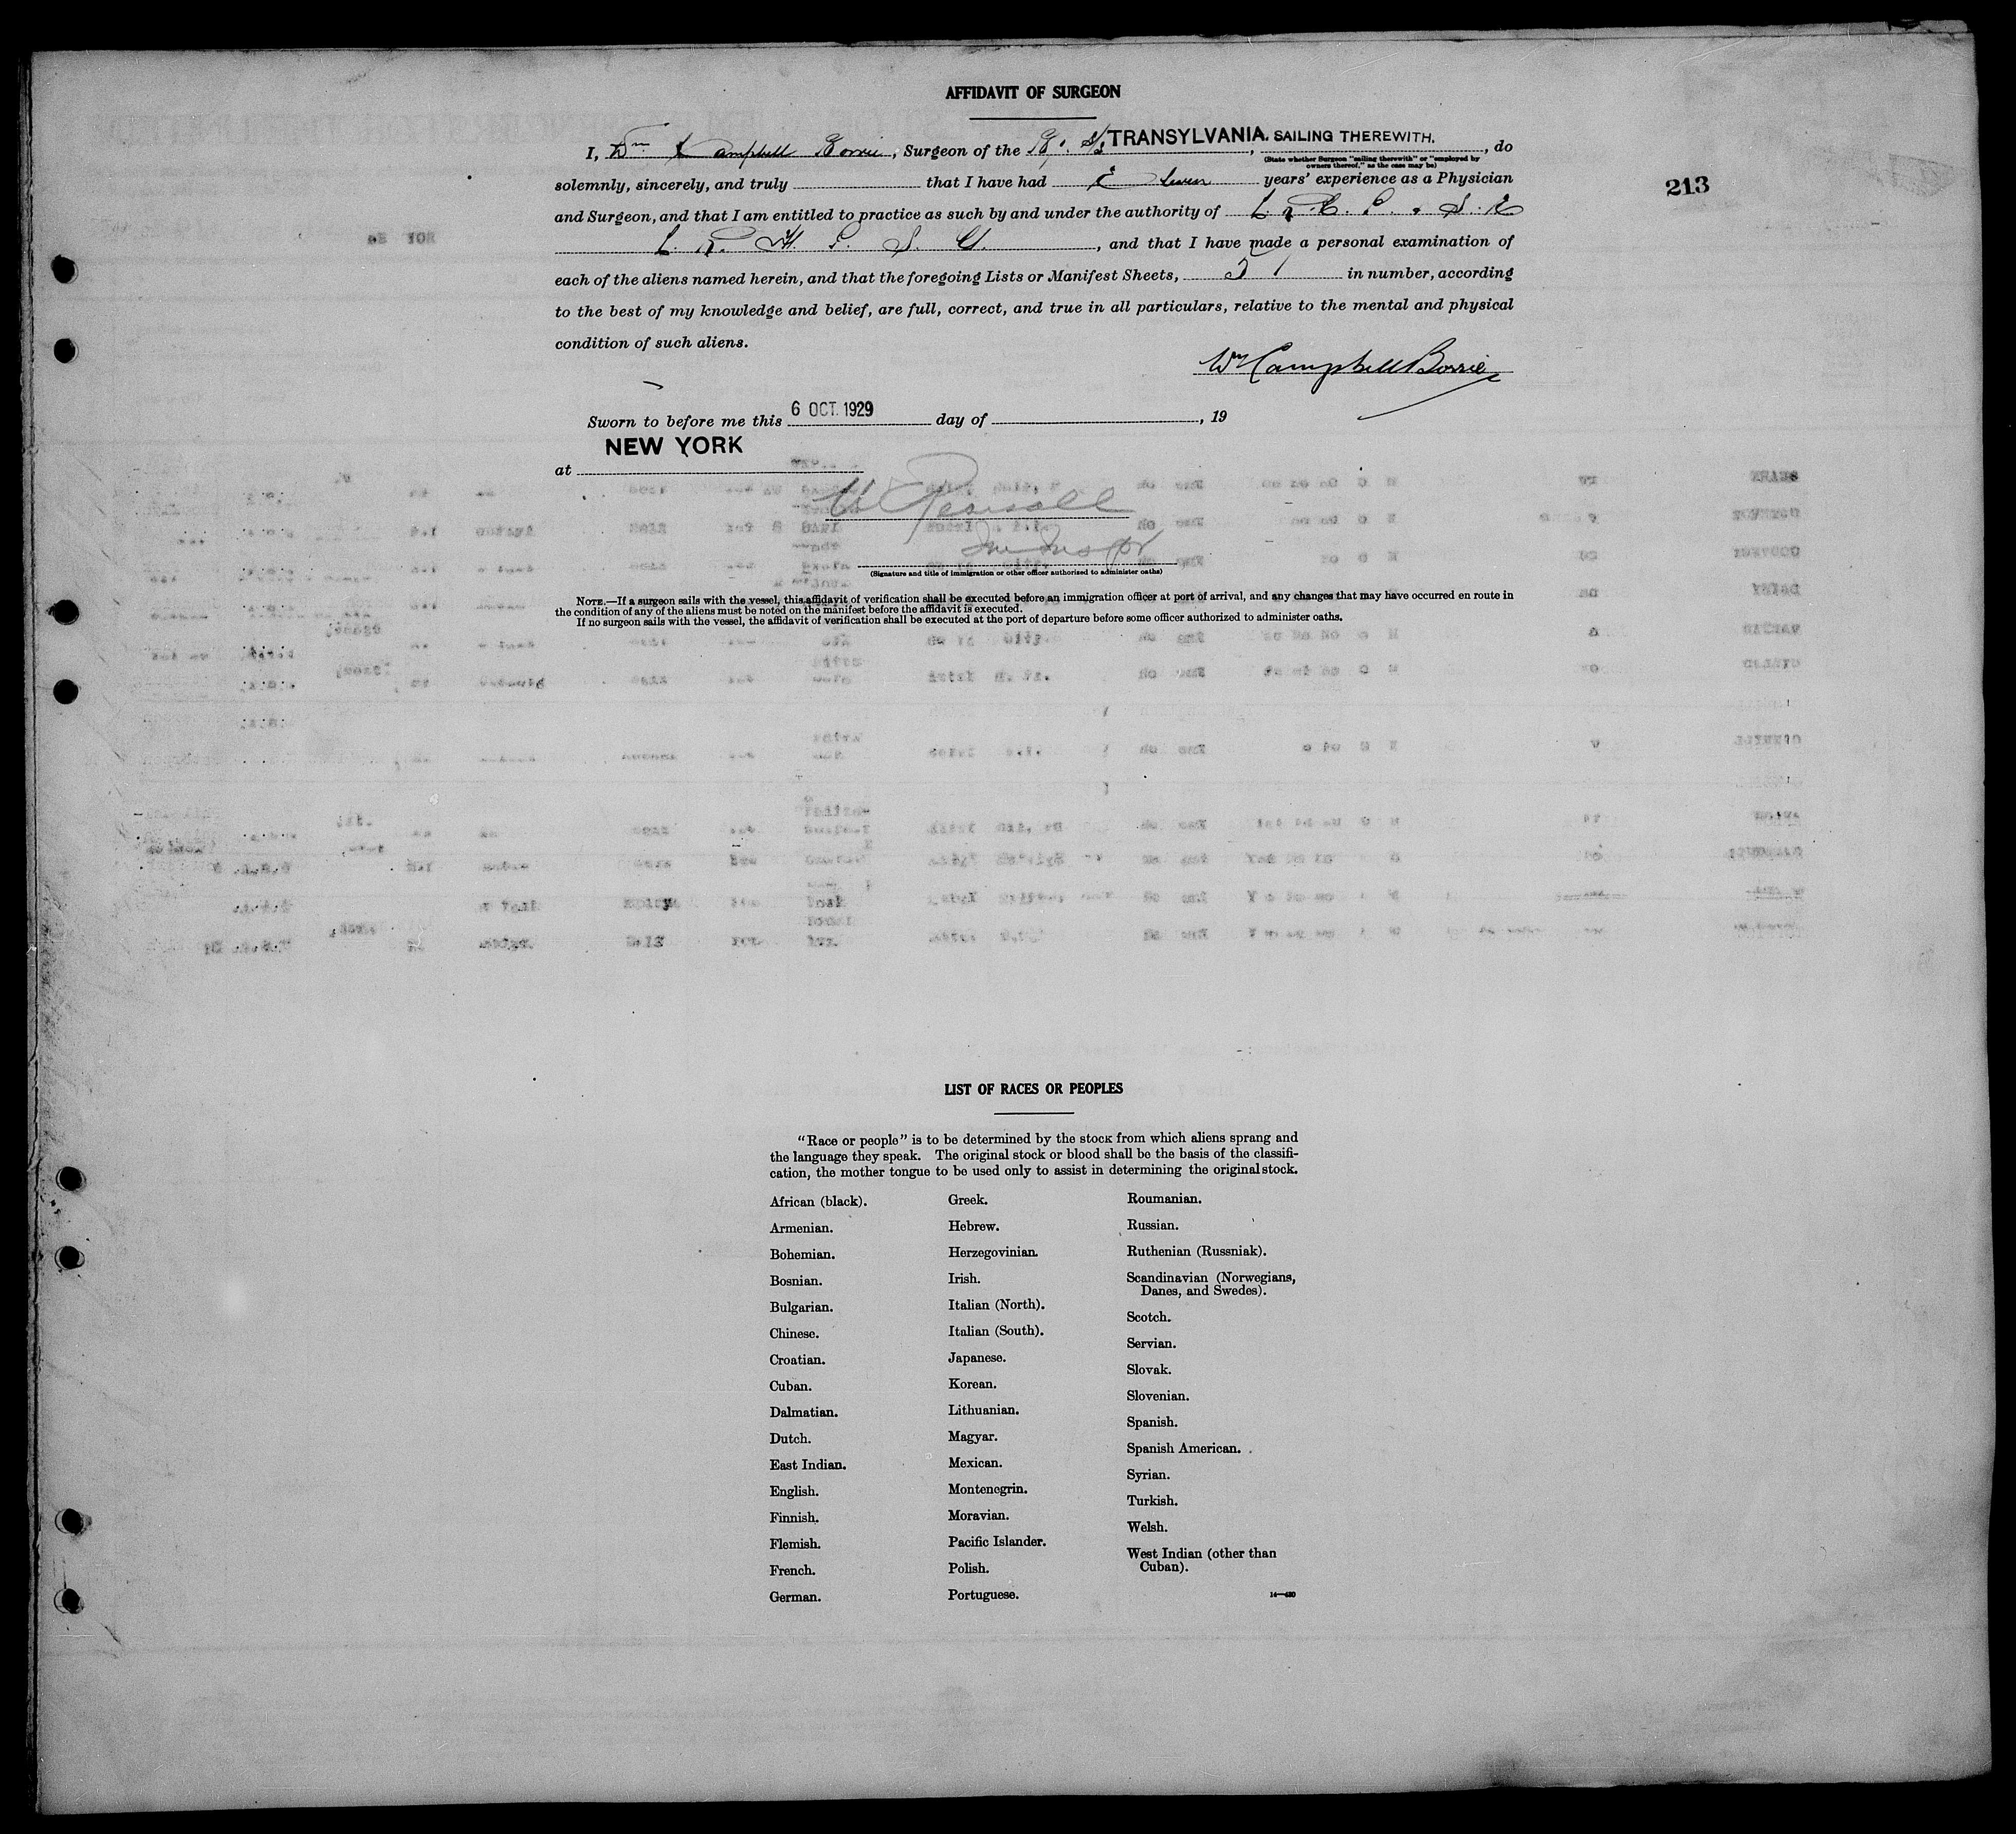 AFFIDAVIT OF SURGEON
I, Wm Campbell Borrie, Surgeon of the S/S TRANSYLVANIA. SAILING THEREWITH., do
(State whether Surgeon "sailing therewith" or "employed by owners thereof," as the case may be)
213
solemnly, sincerely, and truly that I have had years' experience as a Physician
and Surgeon, and that I am entitled to practice as such by and under the authority of
, and that I have made a personal examination of
each of the aliens named herein, and that the foregoing Lists or Manifest Sheets, in number, according
to the best of my knowledge and belief, are full, correct, and true in all particulars, relative to the mental and physical
condition of such aliens.
Wm Campbell Borrie
Sworn to before me this 6 OCT. 1929 day of , 19
NEW YORK
at
(Signature and title of Immigration or other officer authorized to administer oaths)
NOTE.—If a surgeon sails with the vessel, this affidavit of verification shall be executed before an immigration officer at port of arrival, and any changes that may have occurred en route in
the condition of any of the aliens must be noted on the manifest before the affidavit is executed.
If no surgeon sails with the vessel, the affidavit of verification shall be executed at the port of departure before some officer authorized to administer oaths.
LIST OF RACES OR PEOPLES
"Race or people" is to be determined by the stock from which aliens sprang and
the language they speak. The original stock or blood shall be the basis of the classifi-
cation, the mother tongue to be used only to assist in determining the original stock.
African (black).
Armenian.
Bohemian.
Bosnian.
Bulgarian.
Chinese.
Croatian.
Cuban.
Dalmatian.
Dutch.
East Indian.
English.
Finnish.
Flemish.
French.
German.
Greek.
Hebrew.
Herzegovinian.
Irish.
Italian (North).
Italian (South).
Japanese.
Korean.
Lithuanian.
Magyar.
Mexican.
Montenegrin.
Moravian.
Pacific Islander.
Polish.
Portuguese.
Roumanian.
Russian.
Ruthenian (Russniak).
Scandinavian (Norwegians,
Danes, and Swedes).
Scotch.
Servian.
Slovak.
Slovenian.
Spanish.
Spanish American.
Syrian.
Turkish.
Welsh.
West Indian (other than
Cuban).